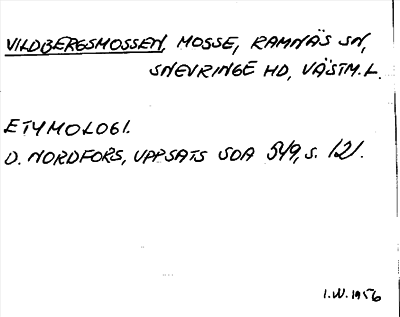 VILDBERGSMOSSEN, MOSSE, RAMNÄS SN,
SNEVRINGE HD, VÄSTM.L.
ETYMOLOGI.
D. NORDFORS, UPPSATS SOA 549, S. 121.
I.W. 1956